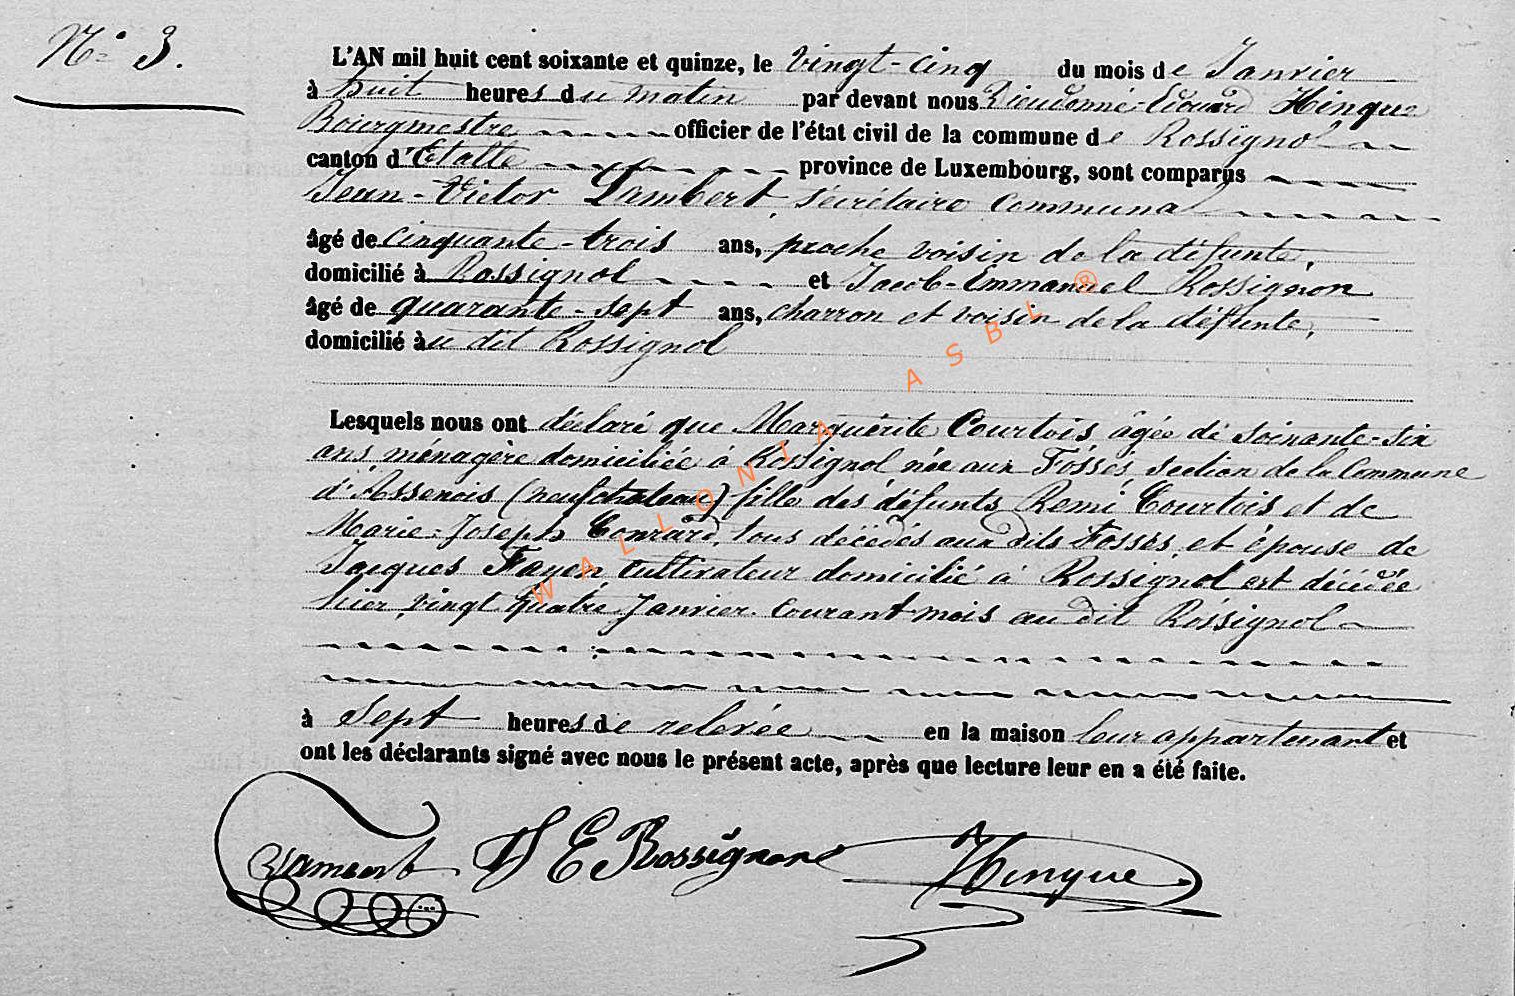 N° 3.
L'AN mil huit cent soixante et quinze, le vingt-cinq du mois de Janvier
à huit heures du matin par devant nous Dieudonné-Edouard Hinque
Bourgmestre officier de l'état civil de la commune de Rossignol
canton d'Etalle province de Luxembourg, sont comparus
Jean-Victor Lambert, sécrétaire communal
âgé de cinquante-trois ans, proche voisin de la défunte,
domicilié à Rossignol et Jacob-Emmanuel Rossignon
âgé de quarante-sept ans, charron et voisin de la défunte,
domicilié au dit Rossignol
Lesquels nous ont déclaré que Marguérite Courtois âgée de soixante-six
ans ménagère domiciliée à Rossignol née aux Fossés, section de la Commune
d'Assenois (neufchateau) fille des défunts Remi Courtois et de
Marie-Joseph Conrard, tous décédés aux dits Fossés, et épouse de
Jacques Fayen cultivateur domicilié à Rossignol est décédée
hier, vingt quatre Janvier courant mois au dit Rossignol
à sept heures de relevée en la maison leur appartenant et
ont les déclarants signé avec nous le présent acte, après que lecture leur en a été faite.
Lambert J E Rossignon Hinque
WALLONIA ASBL ®